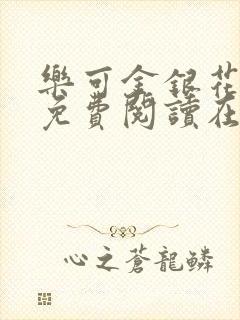 樂可金銀花
免費閱讀在
心之蒼龍鱗